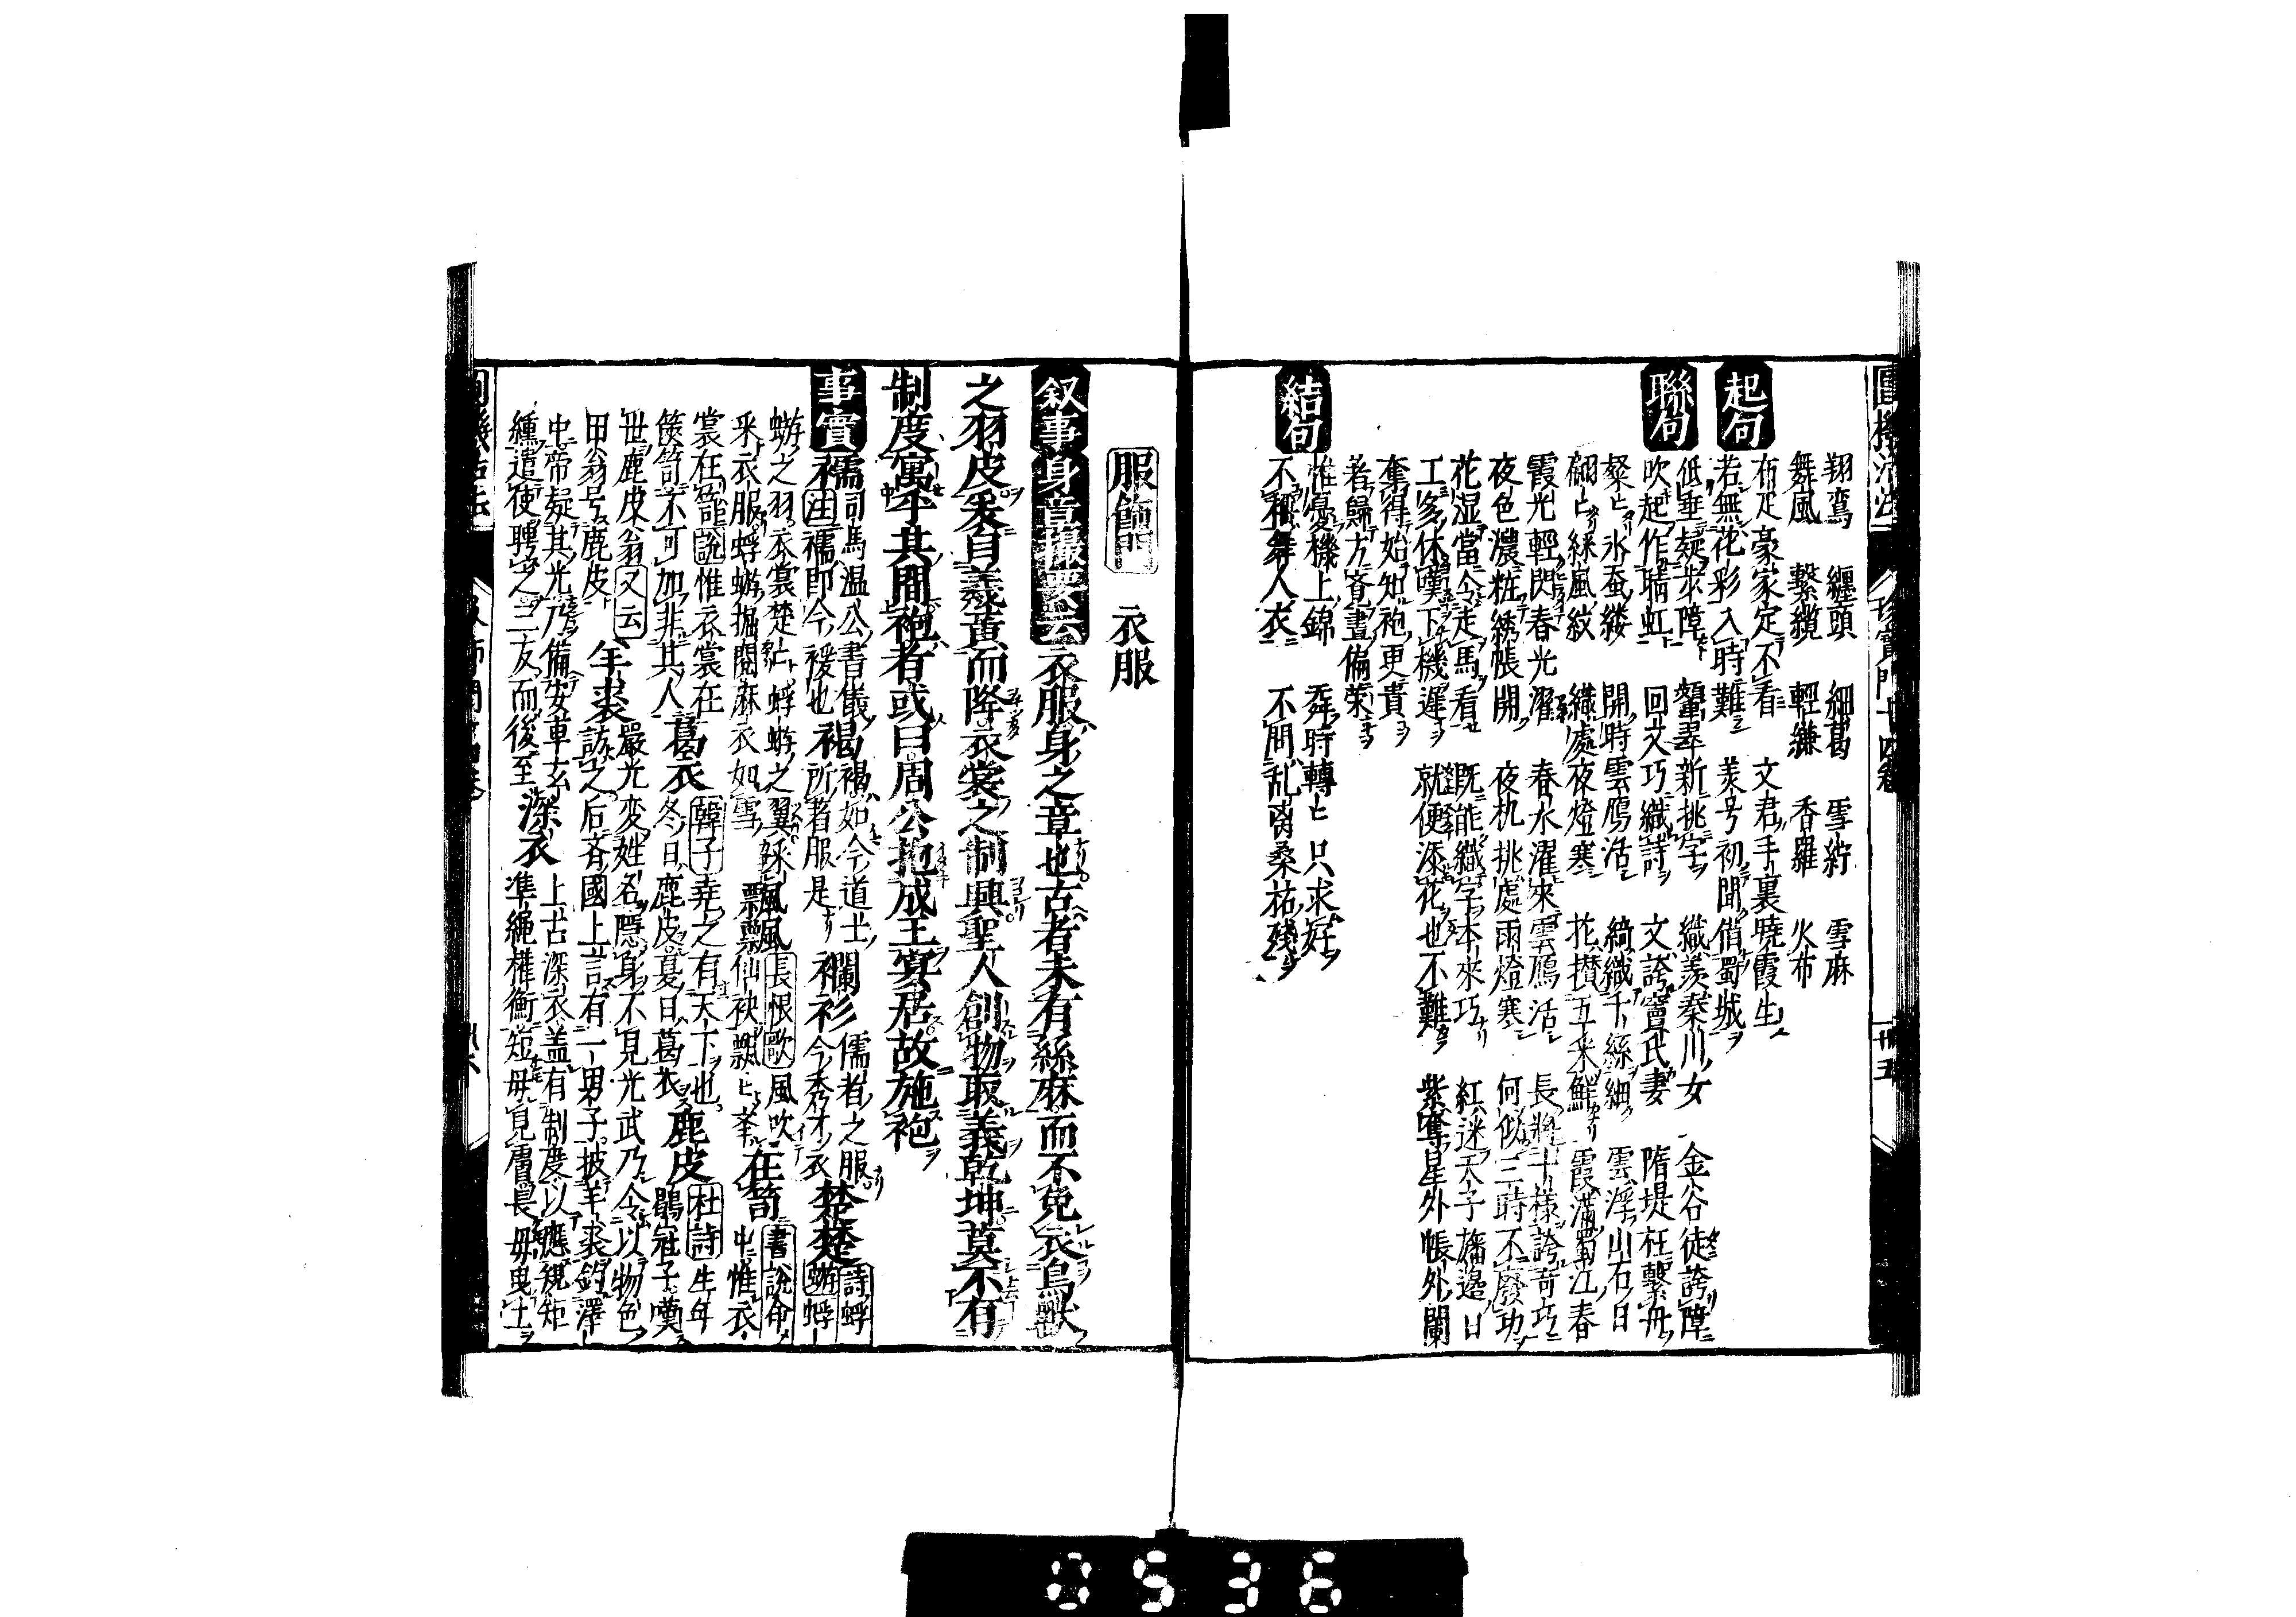 圓機活法 珍寶門十四卷 卅五
翔鸞 纏頭 細葛 雪紵 雪麻
舞風 繫纜 輕縑 香羅 火布
起句 布疋豪家定不看 文君手裏曉霞生
若無花彩入時難 美号初聞借蜀城
聯句 低垂疑步障 顰翠新挑字 織羨秦川女 金谷徒誇障
吹起作晴虹 回文巧織詩 文誇竇氏妻 隋堤枉繫舟
粲〻氷蚕縷 開時雲鴈活 綺織千絲細 雲浮山石日
翩〻綵風紋 織處夜燈寒 花攅五采鮮 霞滿蜀江春
霞光輕閃春光濯 春水濯來雲鴈活 長將十樣誇奇巧
夜色濃粧綉帳開 夜机挑處雨燈寒 何似三時不廢功
花湿當令走馬看 既能織字本來巧 紅迷天子旛邊日
工多休嘆下機遲 就便添花也不難 紫奪星外帳外闌
奪得始知袍更貴
着歸方覚晝偏榮
結句 惟憂機上錦 舜時轉〻只求好
不稱舞人衣 不問乱离桑祐殘
服飾門 衣服
叙事 身章撮要云 衣服身之章也古者未有絲麻而不免衣鳥獸
之羽皮爰自羲黄而降衣裳之制興聖人創物取義乾坤莫不有
制度寓乎其間袍者或曰周公抱成王宴居故施袍
事實 襦 司馬温公書儀褐如今道士 儒者之服 詩蜉
注襦即今襖也 褐 所着服是 襴衫 今秀才衣 楚楚 蝣蜉
蝣之羽衣裳楚〻蜉蝣之翼采 飄飄 長恨歌風吹 在笥 書說命
采衣服蜉蝣掘閱麻衣如雪 仙袂飄〻挙 中惟衣
裳在笥說惟衣裳在 葛衣 韓子堯之有天下也 鹿皮 杜詩生年
篋笥不可加非其人 冬日鹿皮夏日葛衣 鶡冠子嘆
世鹿皮翁又云 羊裘 嚴光变姓名隱身不見光武乃令以物色
甲翁号鹿皮 訪之后斉國上言有一男子披羊裘釣澤
中帝疑其光乃備安車玄 深衣 上古深衣盖有制度以應規矩
纁遣使聘之三友而後至 準繩權衡短毋見膚長毋曳土